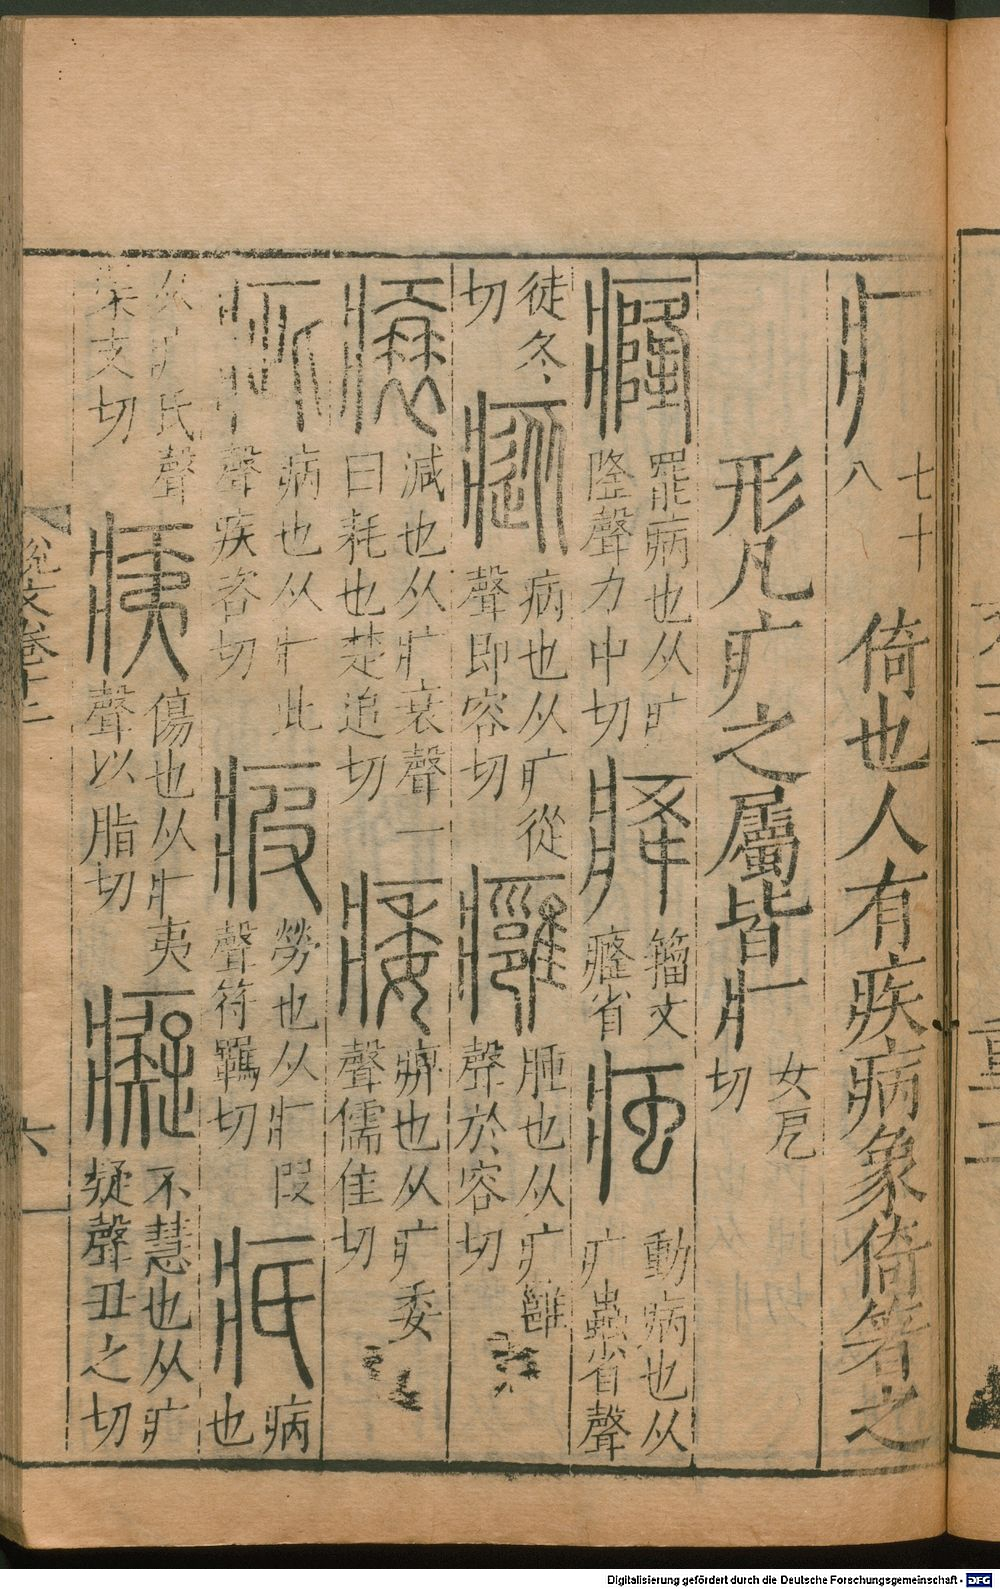 疒 七十八 倚也人有疾病象倚箸之
形凡疒之屬皆从疒 女戹切
癃 罷病也从疒隆聲力中切 𤵸 籀文癃省 疼 動病也从疒蟲省聲
徒冬切 瘲 病也从疒從聲即容切 癰 腫也从疒雝聲於容切
𤸬 減也从疒衰聲一曰耗也楚追切 痿 痹也从疒委聲儒佳切
疵 病也从疒此聲疾咨切 瘕 勞也从疒叚聲符羈切 疧 病也
从疒氏聲渠支切 痍 傷也从疒夷聲以脂切 癡 不慧也从疒疑聲丑之切
說文卷十二
六
Digitalisierung gefördert durch die Deutsche Forschungsgemeinschaft - DFG